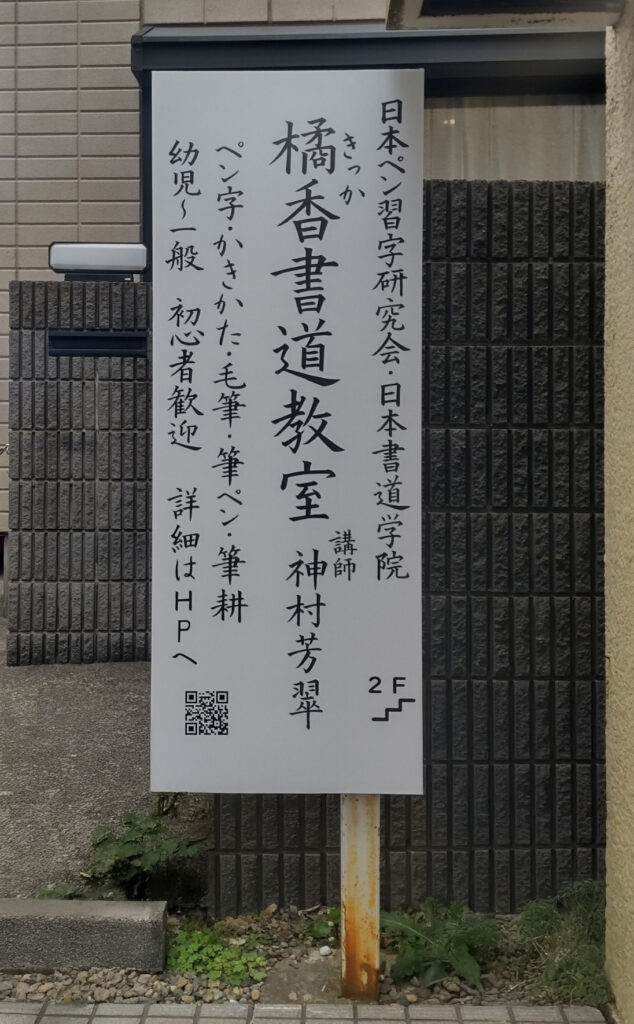 日本ペン習字研究会・日本書道学院
きっか
橘香書道教室
講師
神村芳翠
ペン字・かきかた・毛筆・筆ペン・筆耕
幼児～一般 初心者歓迎 詳細はHPへ
2F